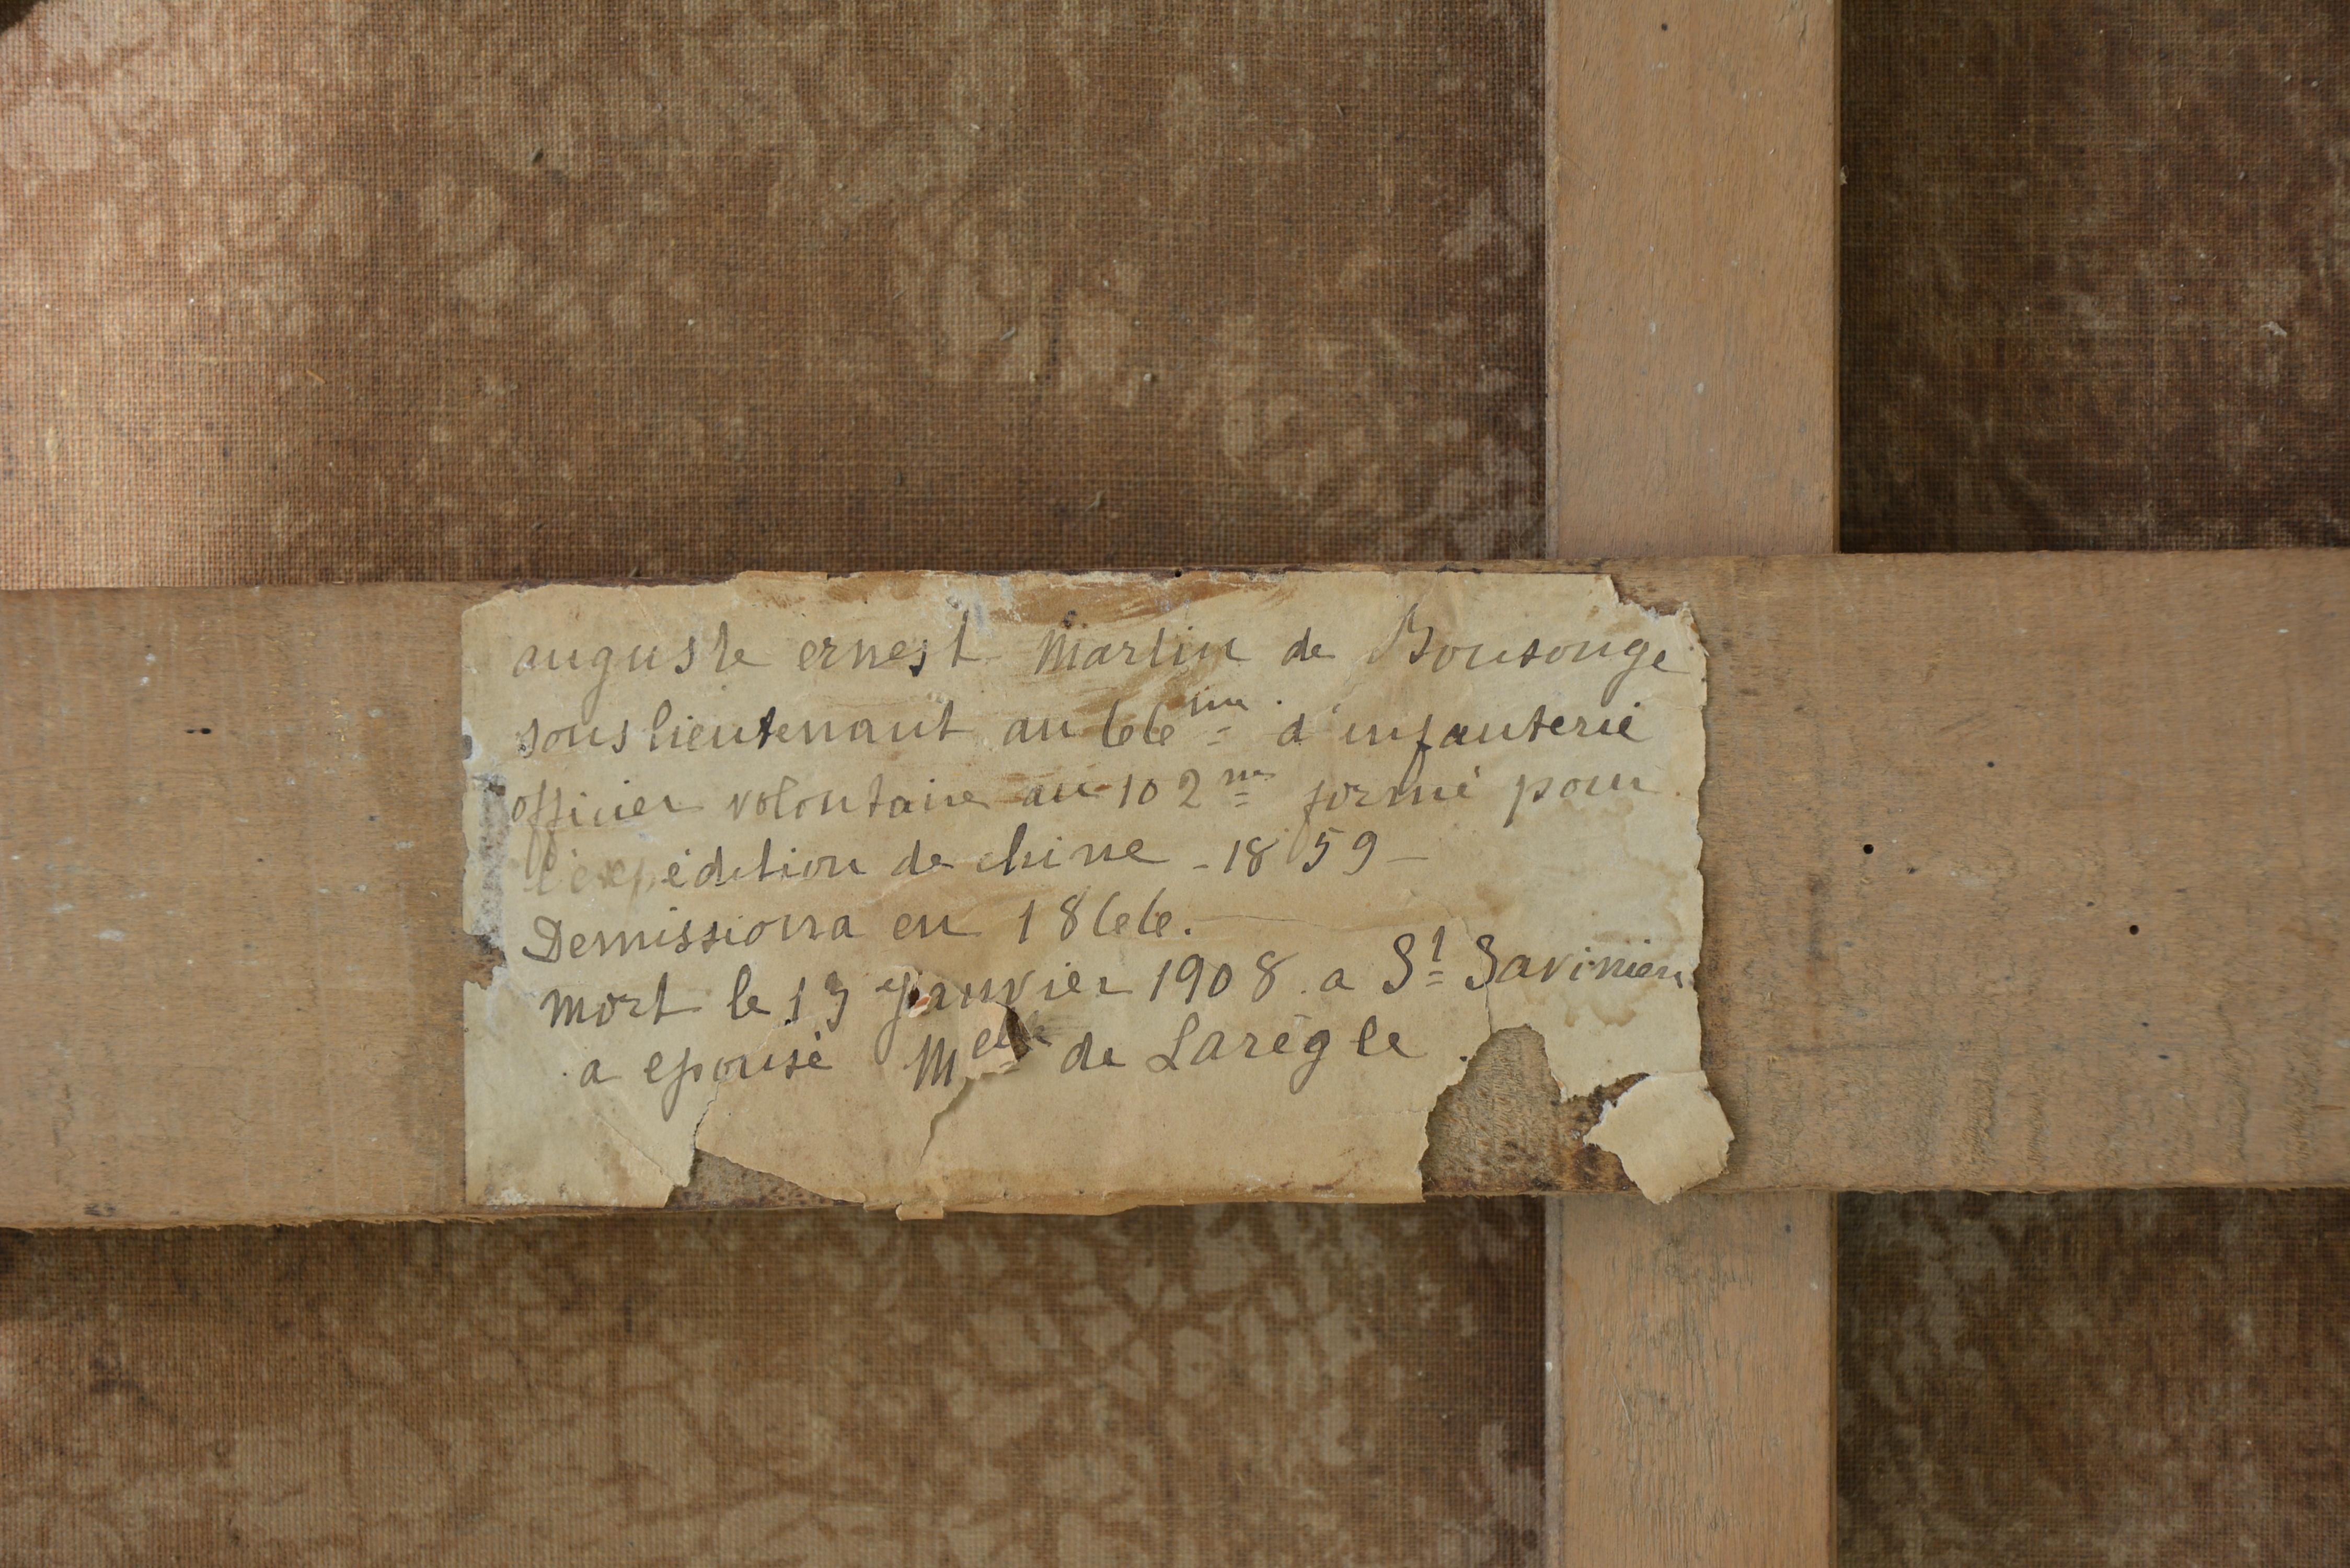 auguste ernest Martin de Bonsonge
sous lieutenant au 66me d'infanterie
officier volontaire au 102me formé pour
l'expédition de chine - 1859 -
Demissiona en 1866.
mort le 13 Janvier 1908 a St Savinien
a epousé Melle de Larègle.